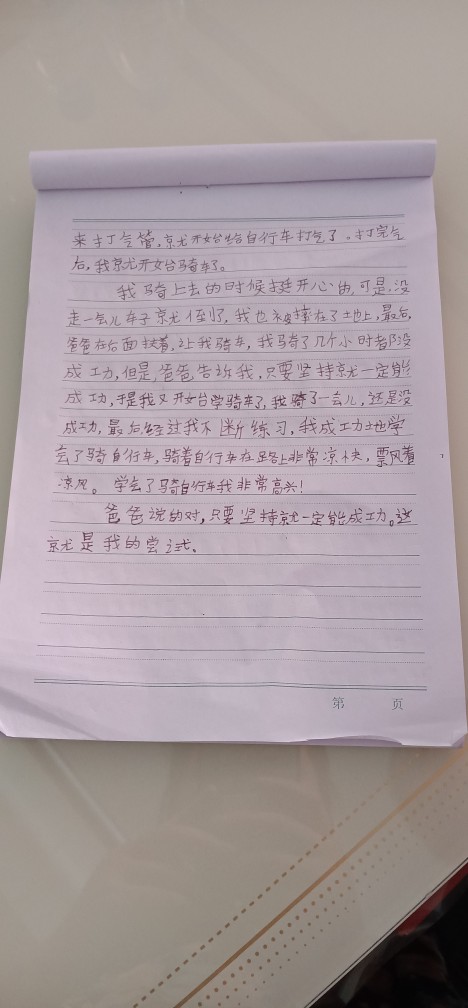 来打气管,就开始给自行车打气了。打完气
后,我就开始骑车了。
我骑上去的时候挺开心的,可是,没
走一会儿车子就倒了,我也被摔在了地上,最后,
爸爸在后面扶着,让我骑车,我骑了几个小时都没
成功,但是,爸爸告诉我,只要坚持就一定能
成功,于是我又开始学骑车了,我骑了一会儿,还是没
成功,最后经过我不断练习,我成功地学
会了骑自行车,骑着自行车在路上非常凉快,飘风着
凉风。学会了骑自行车我非常高兴!
爸爸说的对,只要坚持就一定能成功。这
就是我的尝试.
第 页